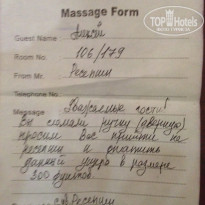 Massage Form
TOP HOTELS
Guest Name
Room No. 106/179
From Mr. Ресепшн
Telephone No.
Message Уважаемые гости!
Вы сломали ручку (дверную)
просим Вас прийти на
ресепшн и оплатить
данный ущерб в размере
300 фунтов.
Ресепшн